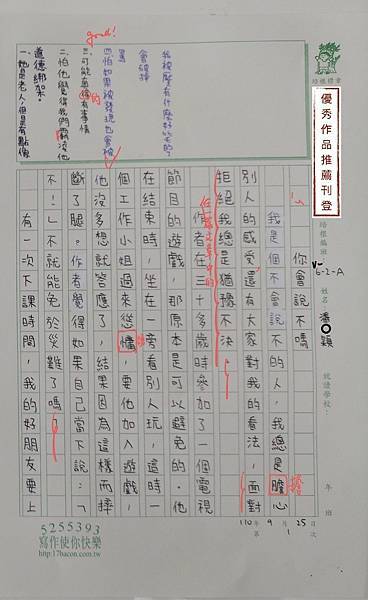 培根標章
優秀作品推薦刊登
培根編班：V-6-2-A 姓名 潘○穎 就讀學校： 年 班
110年9月25日
第1次
你會說不嗎
我是個不會說不的人，我總是膽心
擔
別人的感受，還有大家對我的看法，面對
拒絕我總是猶豫不決。
作者在三十多歲時參加了一個電視
節目的遊戲，那原本是可以避免的。他
在結束時，坐在一旁看別人玩，這時一
個工作小姐過來慫慵，要他加入遊戲，
他沒多想就答應了，結果因為這樣而摔
斷了腿。作者覺得如果自己當下說：「
不！」不就能免於災難了嗎？
有一次下課時間，我的好朋友要上
good!
一、她是老人，但是有點像
道德綁架。
二、怕他覺得我們霸凌他
三、可能直接有事情
的
四、怕如果被發現也會被
罵
5255393
寫作使你快樂
http://17bacon.com.tw